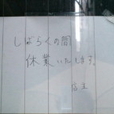 しばらくの間
休業いたします。
店主